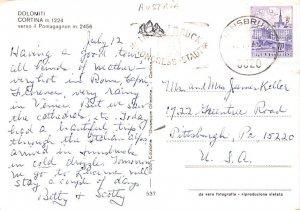 AUSTRIA
DOLOMITI
CORTINA m. 1224
verso il Pomagagnon m. 2456
July 12
Having a good tour
all kinds of weather
very hot in Rome, Capri
Florence, very rainy
in Venice. But we saw
the cathedral, etc. Today
had a beautiful trip
through the Italian alps
arrived in Innsbruck
in cold drizzle. Tomorrow
we go to Lucerne will
stay a couple of days
Betty & Scotty
INNSBRUCK
6020
Mr and Mrs James Keller
1922 Greentree Road
Pittsburgh, Pa 15220
U. S. A.
537
da vera fotografia - riproduzione vietata